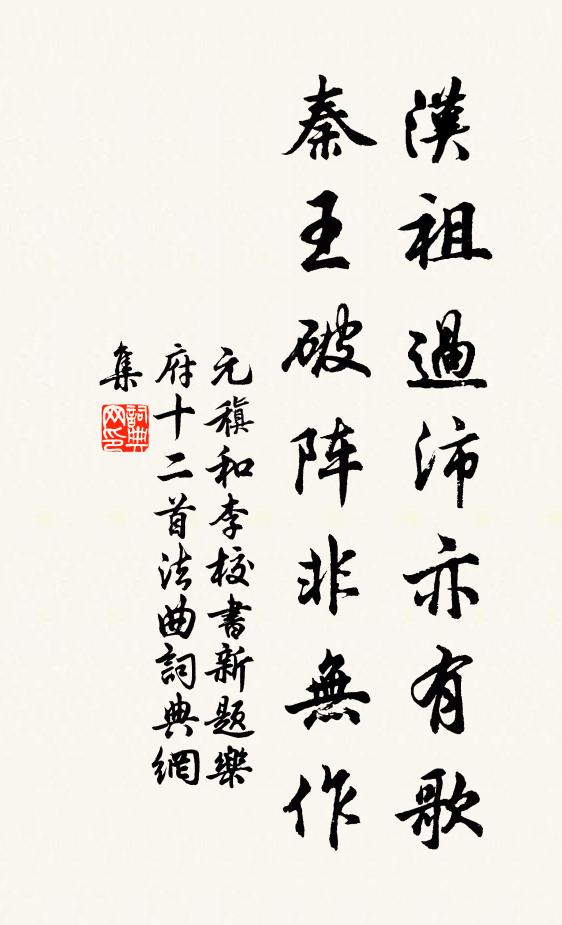 漢祖過沛亦有歌
秦王破阵非無作
元稹和李校書新題樂
府十二首法曲詞典網
集
詞典
网印